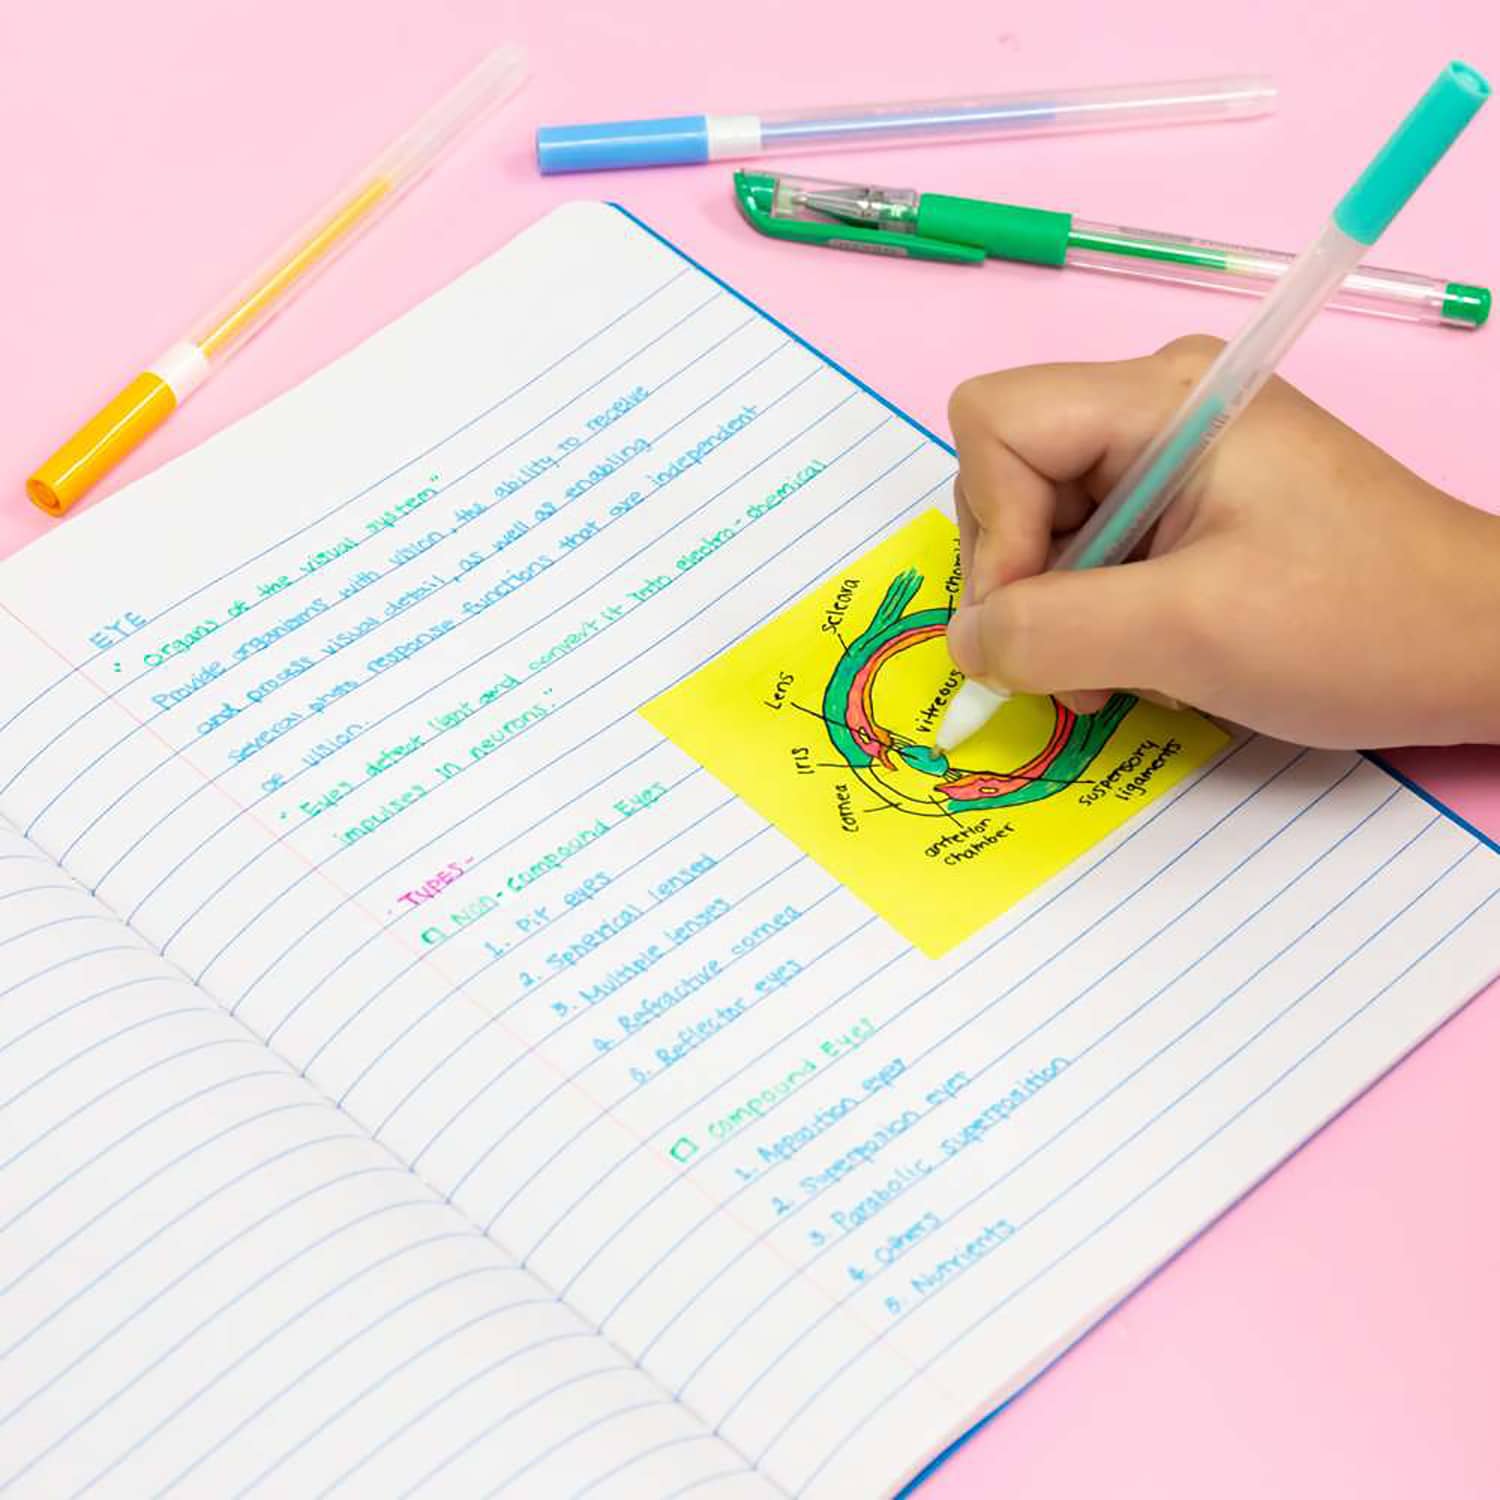 EYE
" Organs of the visual system"
Provide organisms with vision, the ability to receive
and process visual detail, as well as enabling
several photo response functions that are independent
of vision.
" Eyes detect light and convert it into electro-chemical
impulses in neurons."
TYPES-
Non-Compound Eyes
1. Pit eyes
2. Spherical lensed
3. Multiple lenses
4. Refractive cornea
5. Reflector eyes
Compound Eyes
1. Apposition eyes
2. Superposition eyes
3. Parabolic superposition
4. Others
5. Nutrients
scleara
Lens
iris
cornea
anterior
chamber
suspensory
ligaments
vitreous